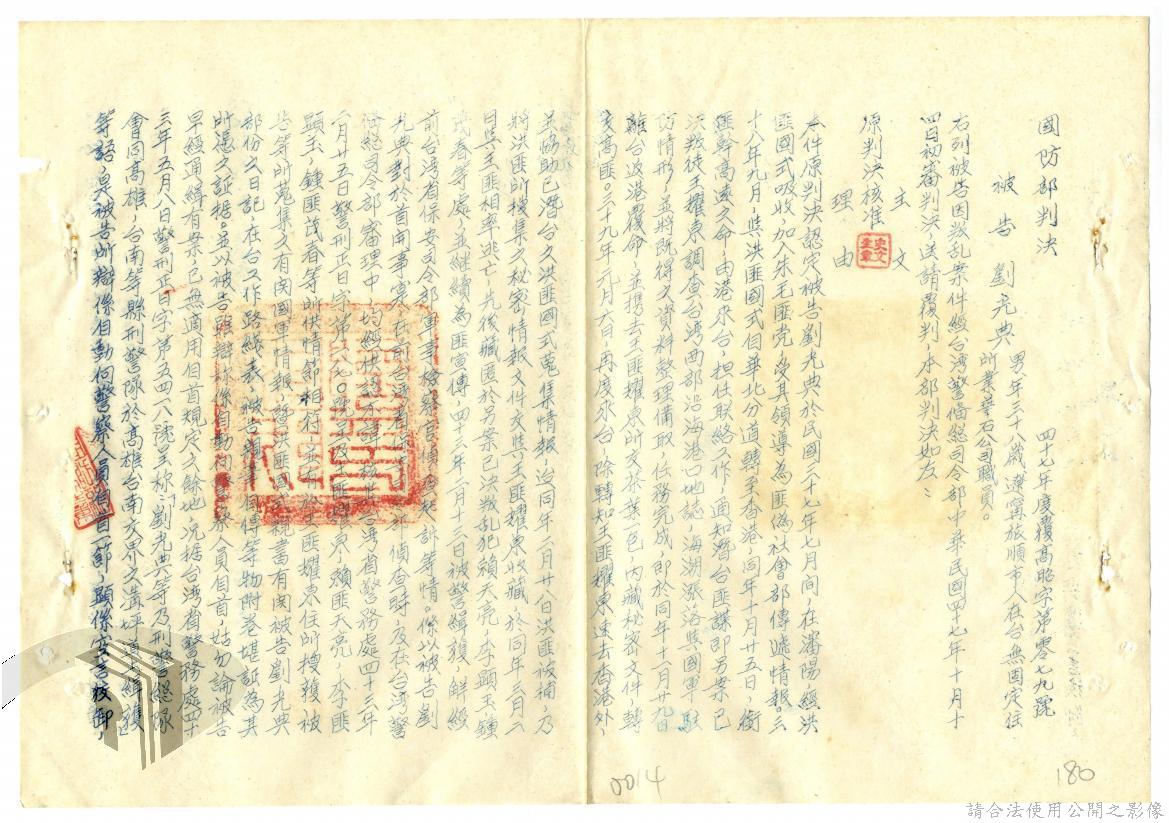 國防部判決
四十七年度覆高昭字第零七九號
被告 劉光典 男年三十八歲遼寧旅順市人在台無固定住
所業華石公司職員。
右列被告因叛乱案件經台湾警俻總司令部中華民國四十七年十月十
四日初審判決，送請覆判，本部判決如左：
主文
原判決核准
理由
本件原判決認定被告劉光典於民國三十七年七月間，在瀋陽，經洪
匪國式吸收加入朱毛匪党，受其領導為匪偽社會部傳遞情報。三
十八年九月，與洪匪國式相率北分道轉至香港，同年十月廿五日，銜
匪幹高遠之命，由港來台，担任联絡工作，通知潛台匪諜即另案已
決叛徒王耀東調查台湾西部沿海港口地誌，海潮漲落與國軍駐
防情形，並將既得之資料整理備取，任務完成，即於同年十一月廿九日
離台返港覆命，並携去王匪耀東所交茶葉一包，內藏秘密文件，轉
交高匪。三十九年元月六日，再度來台，除轉知王匪耀東速去香港外，
並協助已潛台之洪匪國式蒐集情報，迨同年二月廿八日洪匪被捕，乃
將洪匪所搜集之秘密情報文件交與王匪耀東收藏，於同年三月二
日與王匪相率逃亡，先後藏匿於另案已決叛乱犯賴天亮，李顯玉鍾
茂春等處，並継續為匪宣傳，四十三年二月十三日被警緝獲，解經
前台湾省保安司令部軍事檢察官偵查起訴等情。係以被告劉
光典對於首開事實，在前台湾省保安司令部偵查時，及在台湾警
俻總司令部審理中，均經供認不諱，核與台湾省警務處四十三年
二月廿五日警刑正日字第一八七〇號王及王匪耀東，賴匪天亮，李匪
顯玉，鍾匪茂春等所供情節相符，並有於王匪耀東住所搜獲被
告等所蒐集之有関國軍情報，暨洪匪國式親書有関被告劉光典
部份之日記，在台工作路綫表，被告書、國傳等物附卷堪証為其
所憑之証據。並以被告所辯係自動向警察人員自首，姑勿論被告
早經通緝有案，已無適用自首規定之餘地，況据台湾省警務處四十
三年五月八日警刑正日字第五四六號呈称：「劉光典等乃刑警總隊
會同高雄，台南等縣刑警隊於高雄台南交界之溝坪道上緝獲」
等語，是被告所辯係自動向警察人員自首一節，顯係妄言狡卸，
0014
180
請合法使用公開之影像